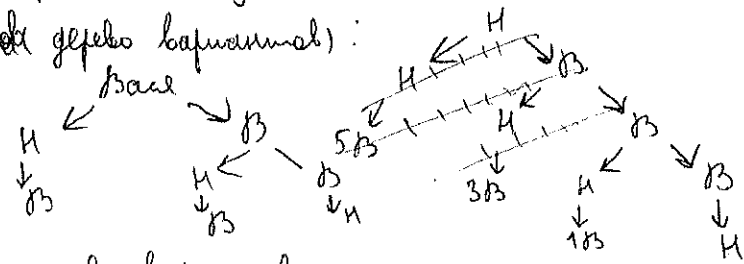 дерево вариантов):
Н
Вася Н В
Н В 5В Н В
В Н В 3В Н В
В Н 1В Н